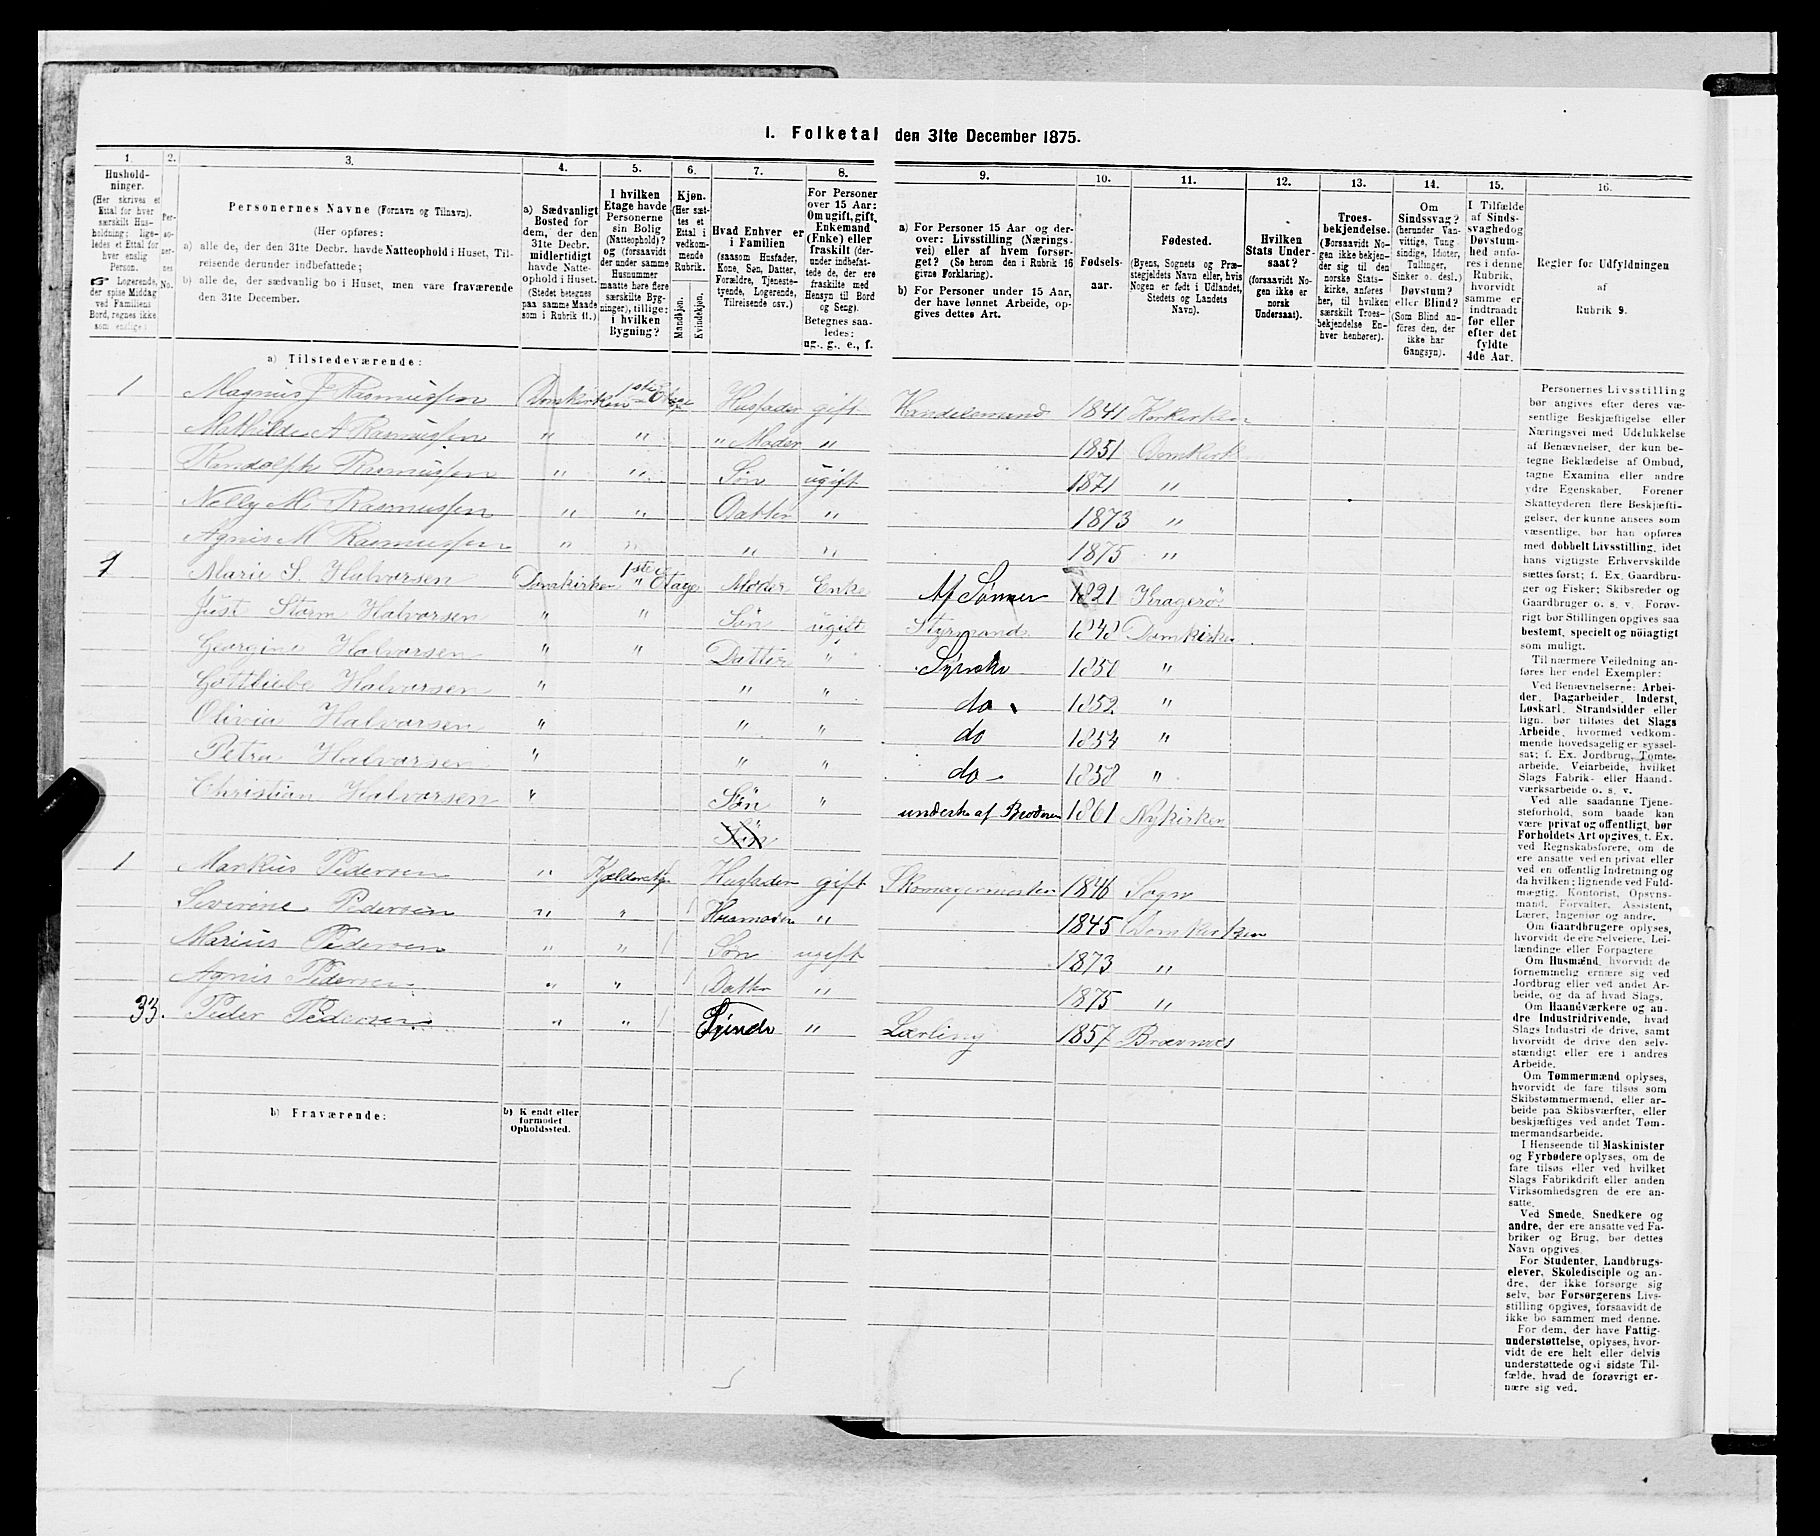 I. Folketal den 31te December 1875.
1. 2. 3. 4. 5. 6. 7. 8. 9. 10. 11. 12. 13. 14. 15. 16.
Husholdninger.
(Her skrives et Ettal for hver særskilt Husholdning; ligeledes et Ettal for hver enslig Person.
☞ Logerende, der spise Middag ved Familiens Bord, regnes ikke som enslige.)
Personernes No.
Personernes Navne (Fornavn og Tilnavn).
(Her opføres:
a) alle de, der den 31te Decbr. havde Natteophold i Huset, Tilreisende derunder indbefattede;
b) alle de, der sædvanlig bo i Huset, men vare fraværende den 31te December.
a) Sædvanligt Bosted for dem, der den 31te Decbr. midlertidigt havde Natteophold i Huset. (Stedet betegnes paa samme Maade som i Rubrik 11.)
I hvilken Etage havde Personerne sin Bolig (Natteophold)? og (forsaavidt der under samme Husnummer maatte høre flere særskilte Bygninger), tillige: i hvilken Bygning?
Kjøn. (Her sættes et Ettal i vedkommende Rubrik.
Mandkjøn. Kvindekjøn.
Hvad Enhver er i Familien (saasom Husfader, Kone, Søn, Datter, Forældre, Tjenestetyende, Logerende, Tilreisende osv.)
For Personer over 15 Aar: Om ugift, gift, Enkemand (Enke) eller fraskilt (derunder indbefattede de, der ere fraskilte med Hensyn til Bord og Seng). Betegnes saaledes: ug., g., e., f.
a) For Personer 15 Aar og derover: Livsstilling (Næringsvei) eller af hvem forsørget? (Se herom den i Rubrik 16 givne Forklaring).
b) For Personer under 15 Aar, der have lønnet Arbeide, opgives dettes Art.
Fødselsaar.
Fødested. (Byens, Sognets og Præstegjeldets Navn eller, hvis Nogen er født i Udlandet, Stedets og Landets Navn).
Hvilken Stats Undersaat? (forsaavidt Nogen ikke er norsk Undersaat).
Troesbekjendelse. (Forsaavidt Nogen ikke bekjender sig til den norske Statskirke, anføres her, til hvilken særskilt Troesbekjendelse Enhver henhører).
Om Sindssvag? (herunder Vanvittige, Tungsindige, Idioter, Tullinger, Sinker o. desl.). Døvstum? eller Blind? (Som Blind anføres den, der ikke har Gangsyn).
I Tilfælde af Sindssvaghed og Døvstumhed anføres i denne Rubrik, hvorvidt samme er indtraadt før eller efter det fyldte 4de Aar.
Regler for Udfyldningen af Rubrik 9.
a) Tilstedeværende:
1 Magnus J Rasmussen Domkirken 1ste Etage Husfader gift Handelsmand 1841 Korskirken
Mathilde A Rasmussen " " " Moder " 1851 Domkirk
Randolph Rasmussen " " Søn ugift 1871 "
Nelly M Rasmussen " " Datter " 1873 "
Agnis M Rasmussen " " " " 1875 "
1 Marie S. Halvorsen Domkirken 1ste Etage Moder Enke Af Sønner 1821 Kragerø
Just Storm Halvorsen " " Søn ugift Styrmand 1848 Domkirken
Georgine Halvorsen " " Datter " 1850 "
Gottliebe Halvorsen " " " do 1852 "
Olivia Halvorsen " " " do 1854 "
Petra Halvorsen " " " do 1858 "
Christian Halvorsen " Søn " af Broderen 1861 Nykirken
Søn
1 Markus Pedersen " Husfader gift Skomagermester 1846 Sogn
Severine Pedersen " " Husmoder " 1845 Domkirken
Marius Pedersen " " Søn ugift 1873 "
Agnis Pedersen " " Datter " 1875 "
33. Peder Pedersen " " " Lærling 1857
b) Fraværende:
b) Kjendt eller formodet Opholdssted.
Personernes Livsstilling bør angives efter deres væsentlige Beskjæftigelse eller Næringsvei med Udelukkelse af Benævnelser, der kun betegne Beklædelse af Ombud, tagne Examina eller andre ydre Egenskaber. Forener Skatteyderen flere Beskjæftigelser, der kunne ansees som væsentlige, bør han opføres med dobbelt Livsstilling, idet hans vigtigste Erhvervskilde sættes først; f. Ex. Gaardbruger og Fisker; Skibsreder og Gaardbruger o. s. v. Forøvrigt bør Stillingen opgives saa bestemt, specielt og nöiagtigt som muligt.
Til nærmere Veiledning anføres her endel Exempler:
Ved Benævnelserne: Arbeider, Dagarbeider, Inderst, Løskarl, Strandsidder eller lign. bør tilføies det Slags Arbeide, hvormed vedkommende hovedsagelig er sysselsat; f. Ex. Jordbrug, Tomtearbeide, Veiarbeide, hvilket Slags Fabrik- eller Haandværksarbeide o. s. v.
Ved alle saadanne Tjenesteforhold, som baade kan være privat og offentligt, bør Forholdets Art opgives, t. Ex. ved Regnskabsførere, om de ere ansatte ved en privat eller ved en offentlig Indretning og da hvilken; lignende ved Fuldmægtig, Kontorist, Opsynsmand, Forvalter, Assistent, Lærer, Ingeniør og andre.
Om Gaardbrugere oplyses, hvorvidt de ere Selveiere, Leilændinge eller Forpagtere
Om Husmænd, hvorvidt de fornemmelig ernære sig ved Jordbrug eller ved andet Arbeide, og da af hvad Slags.
Om Haandværkere og andre Industridrivende, hvad Slags Industri de drive, samt hvorvidt de drive den selvstændigt eller ere i andres Arbeide.
Om Tømmermænd oplyses, hvorvidt de fare tilsøs som Skibstømmermænd, eller arbeide paa Skibsværfter, eller beskjæftiges ved andet Tømmermandsarbeide.
I Henseende til Maskinister og Fyrbødere oplyses, om de fare tilsøs eller ved hvilket Slags Fabrikdrift eller anden Virksomhedsgren de ere ansatte.
Ved Smede, Snedkere og andre, der ere ansatte ved Fabriker og Brug, bør dettes Navn opgives.
For Studenter, Landbrugselever, Skoledisciple og andre, der ikke forsørge sig selv, bør Forsørgerens Livsstilling opgives, forsaavidt de ikke bo sammen med denne.
For dem, der have Fattigunderstøttelse, oplyses, hvorvidt de ere helt eller delvis understøttede og i sidste Tilfælde, hvad de forøvrigt ernære sig ved.